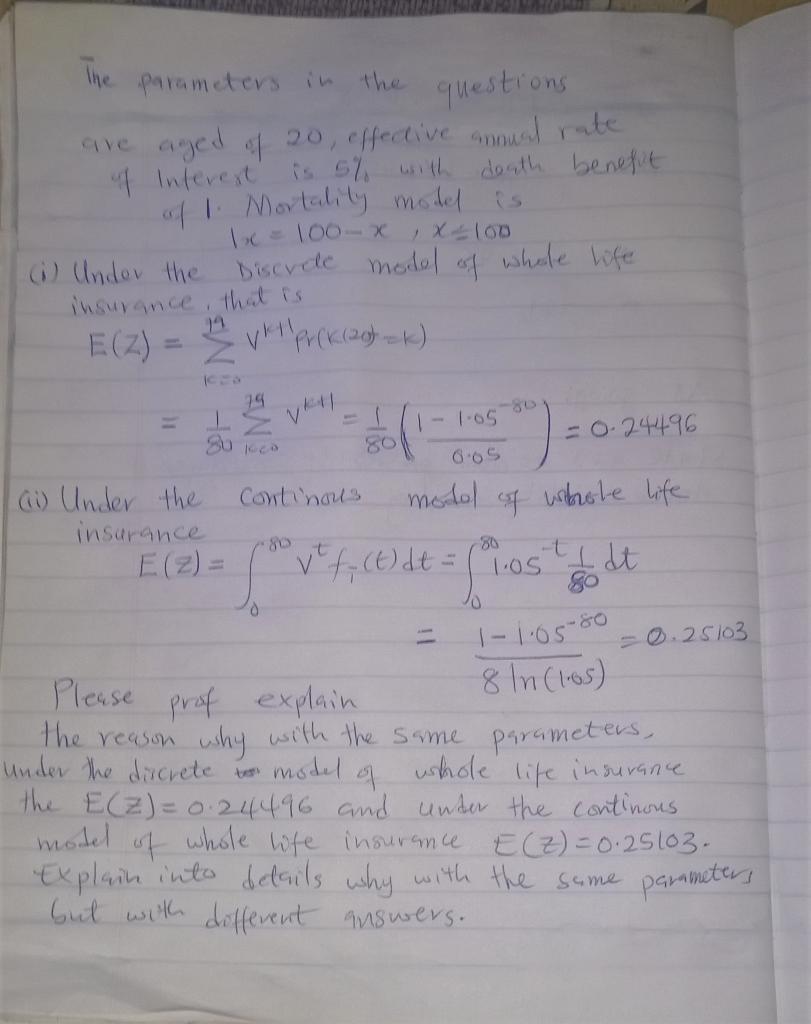 The parameters in the questions
are aged of 20, effective annual rate
of Interest is 5% with death benefit
of 1. Mortality model is
lx = 100 - x , x ≤ 100
(i) Under the Discrete model of whole life
insurance, that is
E(Z) = 79 Σ k=0 V^k+1 Pr(K(20) = k)
= 1/80 79 Σ k=0 V^k+1 = 1/80 ( 1 - 1.05^-80 / 0.05 ) = 0.24496
(ii) Under the continous model of whole life
insurance
E(Z) = ∫0^80 V^t fT(t) dt = ∫0^80 1.05^-t 1/80 dt
= 1 - 1.05^-80 / 8 ln(1.05) = 0.25103
Please prof explain
the reason why with the same parameters,
under the discrete model of whole life insurance
the E(Z) = 0.24496 and under the continous
model of whole life insurance E(Z) = 0.25103.
Explain into details why with the same parameters
but with different answers.